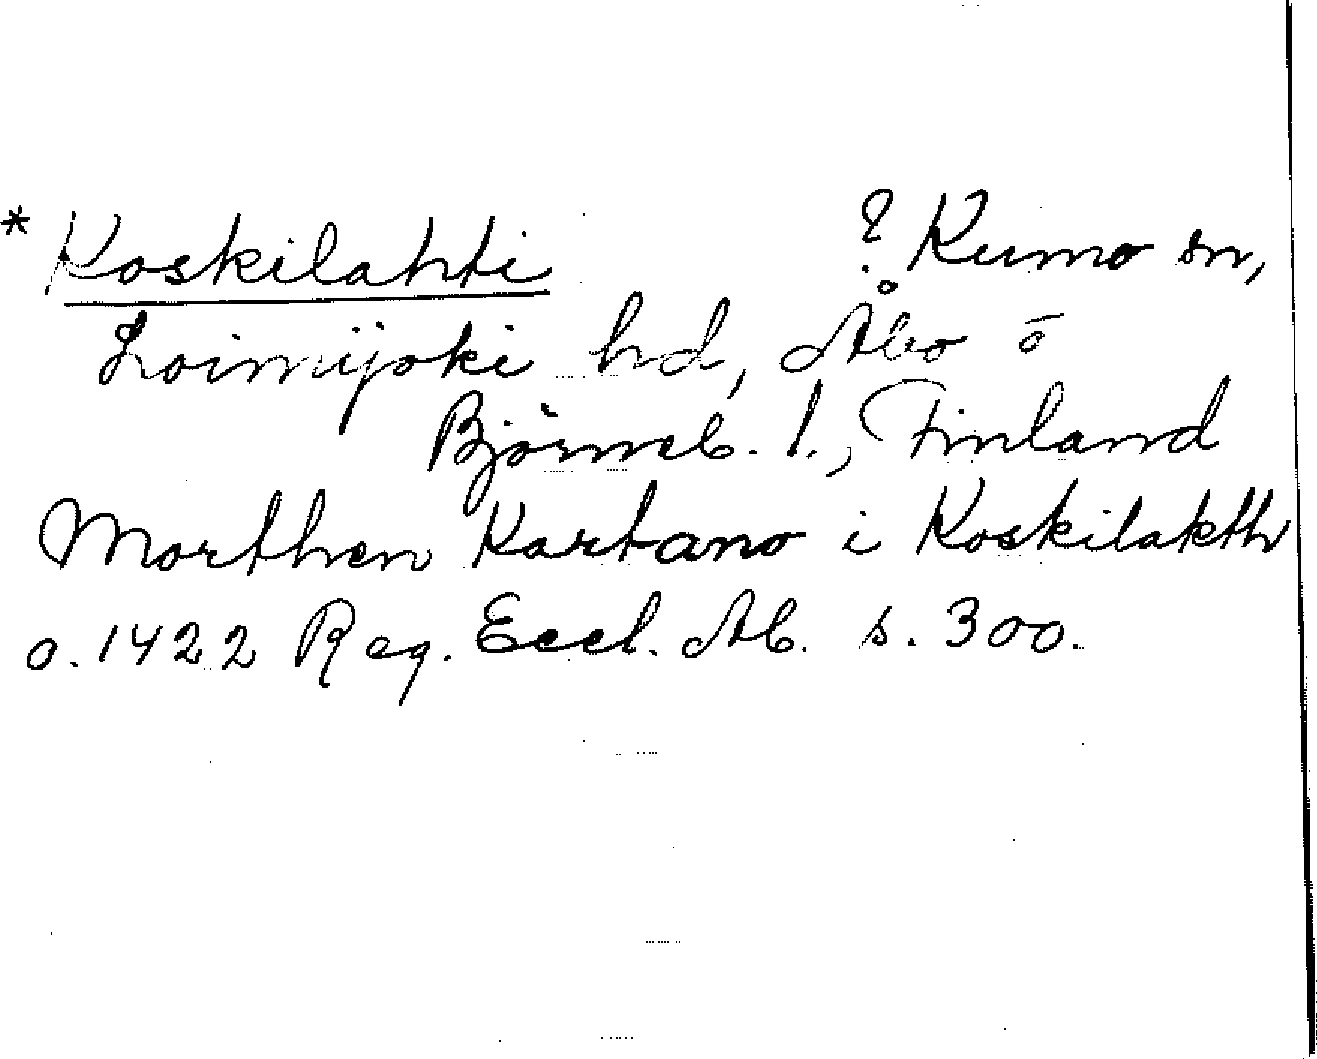 * Koskilahti ? Kumo sn,
Loimijoki hd, Åbo o
Björneb. l., Finland
Morthen Kartano i Koskilakth
o. 1422 Reg. Eccl. Ab. s. 300.